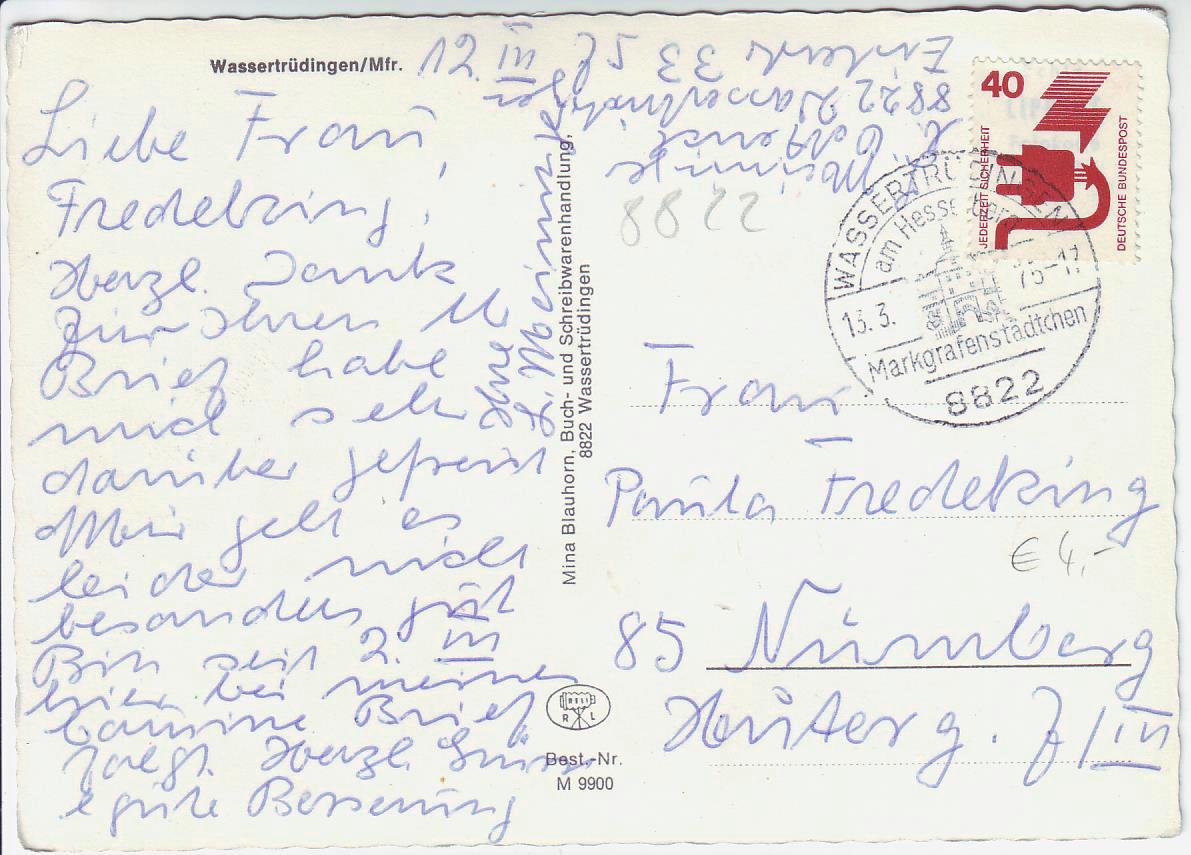 Wassertrüdingen/Mfr.
12. III
Liebe Frau
Fredeking,
Herzl. Dank
für Ihren lb
Brief habe
mich sehr
darüber gefreut
Mir geht es
leider nicht
besonders gut
Bin seit 2. III
hier bei meiner
Brief
folgt. Herzl. Grüsse
e gute Besserung
Ihre
8822 Wassertrüdingen
8822
Mina Blauhorn, Buch- und Schreibwarenhandlung,
8822 Wassertrüdingen
RELI
R L
Best.-Nr.
M 9900
40
JEDERZEIT SICHERHEIT
DEUTSCHE BUNDESPOST
WASSERTRÜDINGEN
am Hesselberg
13.3. 75-17
Markgrafenstädtchen
8822
Frau
Paula Fredeking
€ 4,-
85 Nürnberg